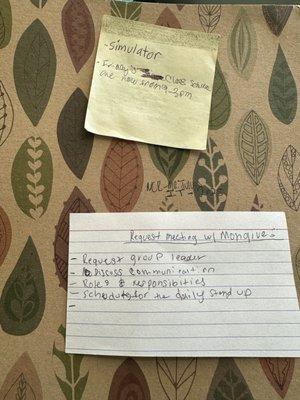 - Simulator
- Friday's Class Schedule
one hour ending 3pm
Request meeting w/
- Request group leader
- Discuss Communication
- Roles & responsibilities
- Schedule for the daily stand up
-